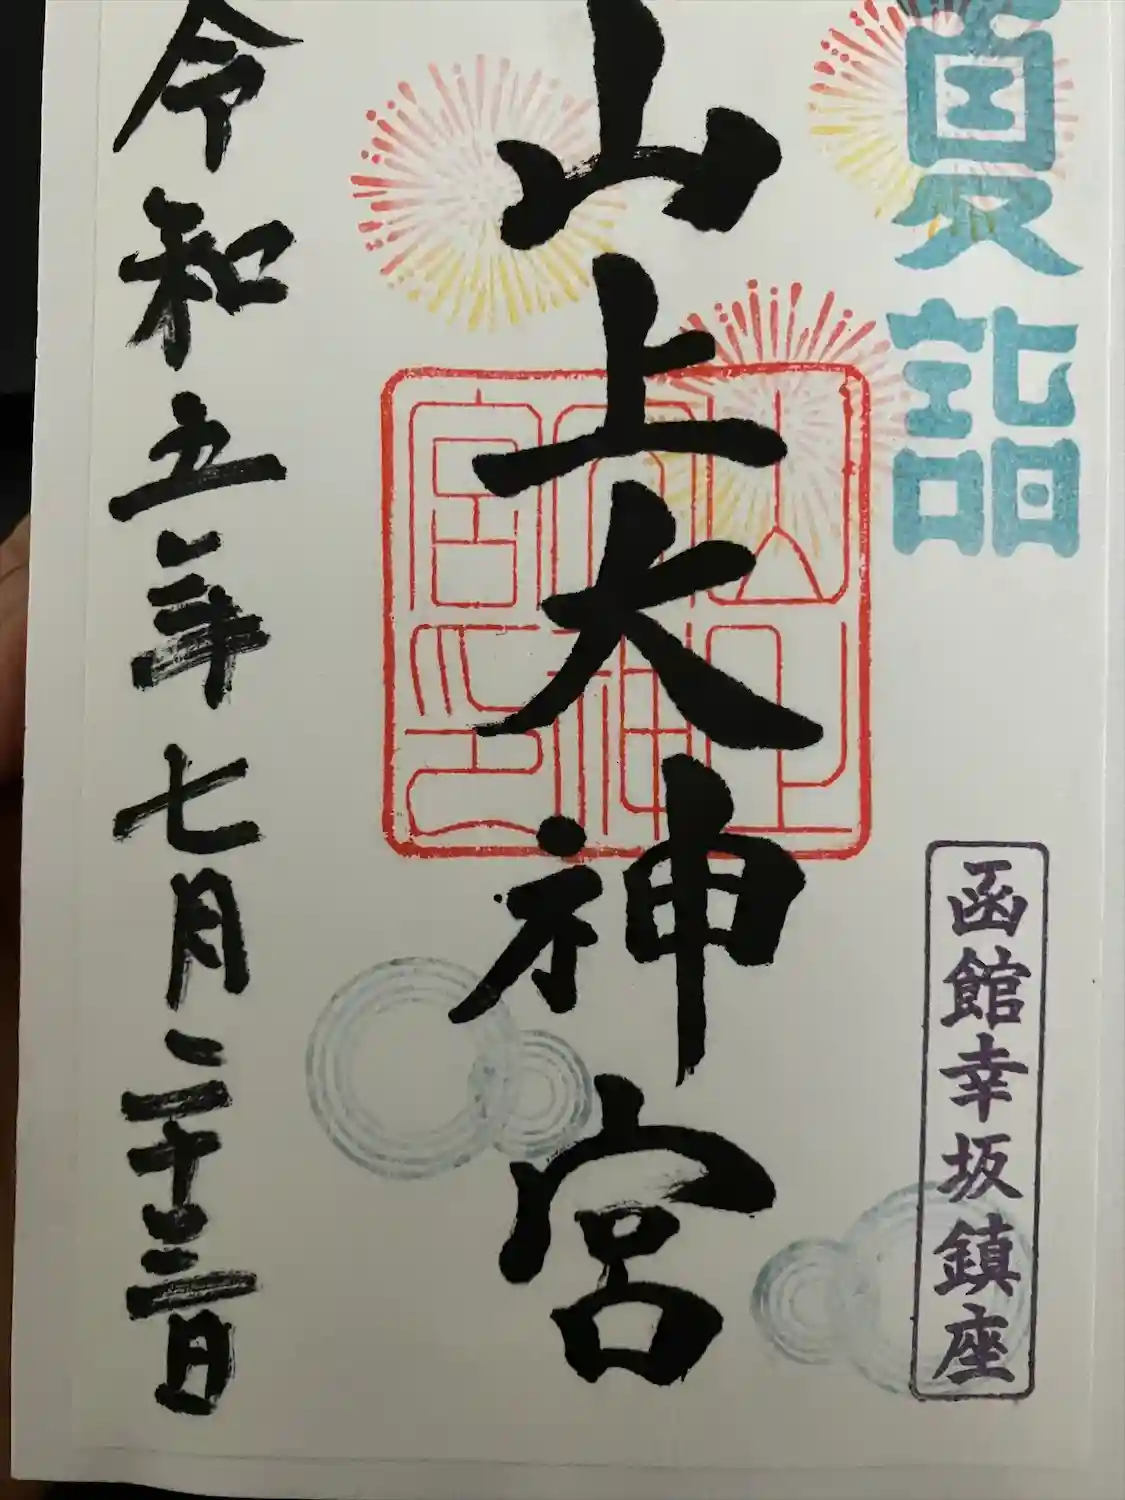 夏詣
函館幸坂鎮座
山上大神宮
山上大神宮印
令和五年七月二十三日